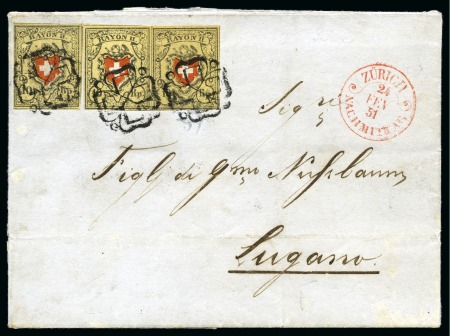 RAYON II. RAYON II. RAYON II.
ZÜRICH
24
FEV
51
NACHMITTAG
Sig.re
Figli di
Lugano.